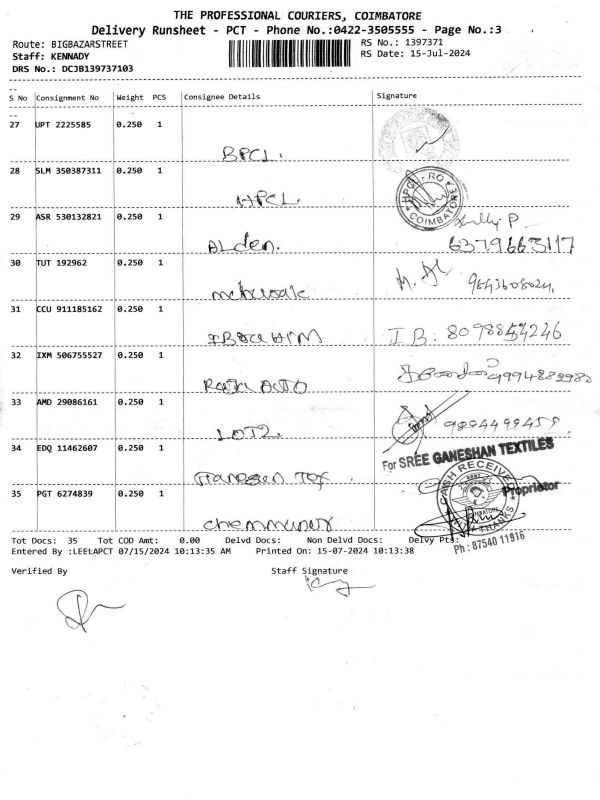 THE PROFESSIONAL COURIERS, COIMBATORE
Delivery Runsheet - PCT - Phone No.:0422-3505555 - Page No.:3
Route: BIGBAZARSTREET
RS No.: 1397371
Staff: KENNADY
RS Date: 15-Jul-2024
DRS No.: DCJB139737103
S No Consignment No Weight PCS Consignee Details Signature
27 UPT 2225585 0.250 1
BPCL.
28 SLM 350387311 0.250 1
HPCL.
HPCL-RO
COIMBATORE
29 ASR 530132821 0.250 1
ALden.
6379663117
30 TUT 192962 0.250 1
9843608024,
31 CCU 911185162 0.250 1
IBRAHIM
IB: 8098854246
32 IXM 506755527 0.250 1
Raja AUTO
33 AMD 29086161 0.250 1
LOT2.
9894499455.
34 EDQ 11462607 0.250 1
For SREE GANESHAN TEXTILES
Ganesan Tex
35 PGT 6274839 0.250 1
CASH RECEIVED
Proprietor
COIMBATORE
THANKS
Chemmanur
Tot Docs: 35 Tot COD Amt: 0.00 Delvd Docs: Non Delvd Docs: Delvy Pts:
Ph : 87540 11916
Entered By :LEELAPCT 07/15/2024 10:13:35 AM Printed On: 15-07-2024 10:13:38
Verified By Staff Signature